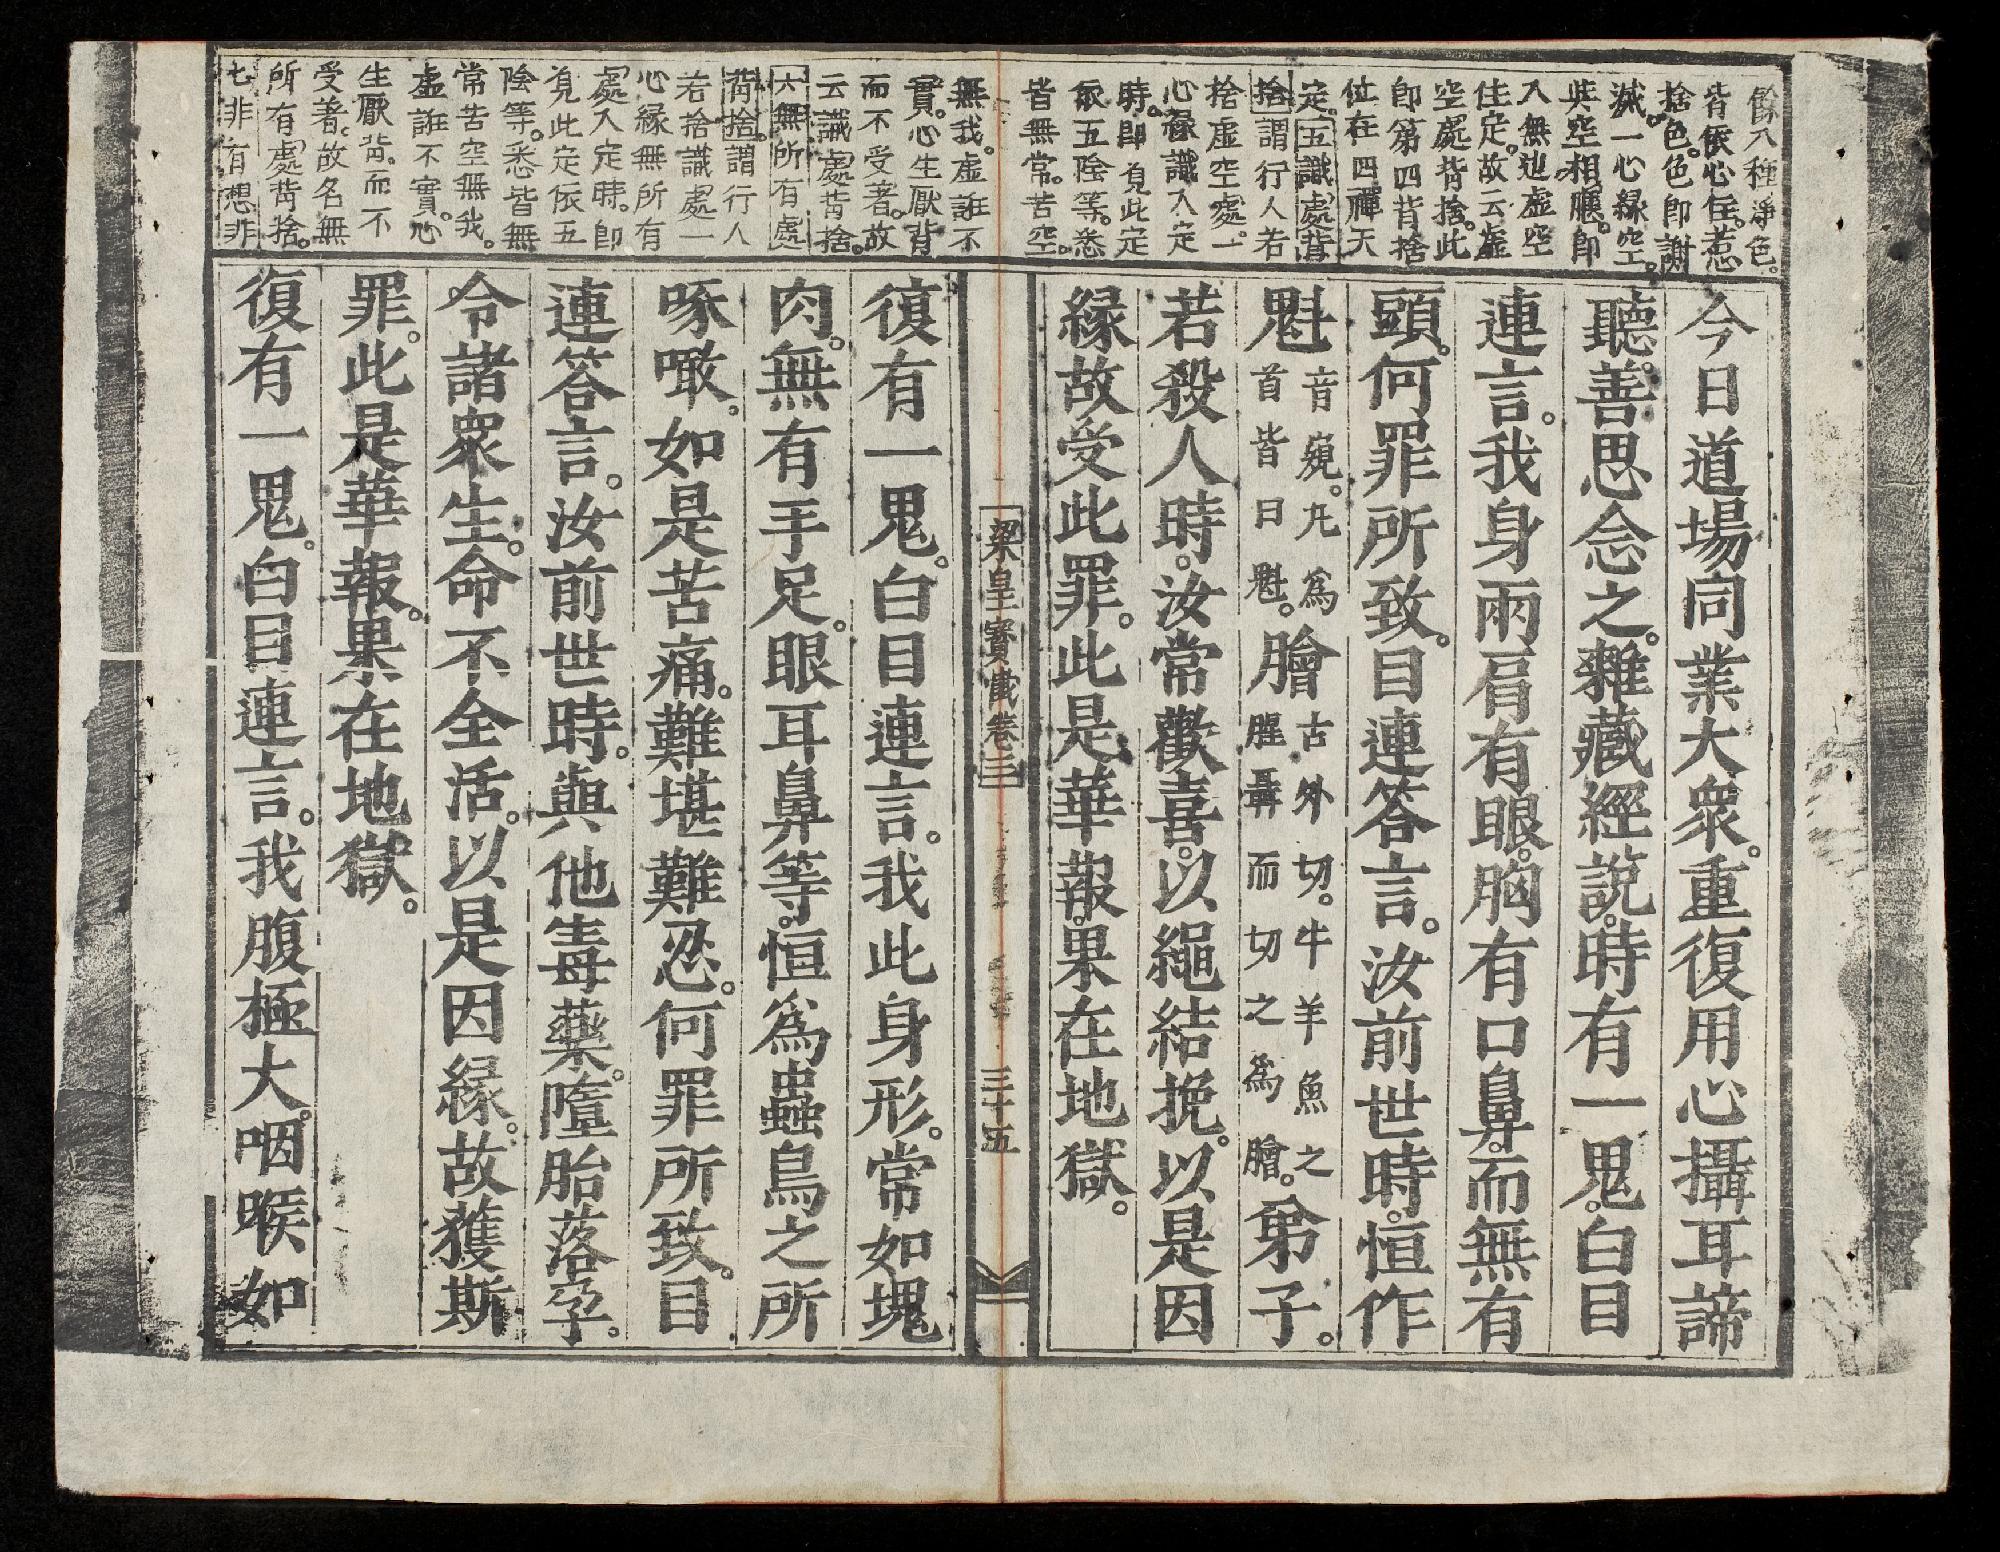 餘八種淨色。
皆依心住。若
捨色。色即謝
滅。一心緣空。
與空相應。即
入無邊虛空
住定。故云虛
空處背捨。此
即第四背捨
位在四禪天
定。五識處背
捨謂行人若
捨虛空處。一
心緣識入定
時。即見此定
依五陰等。悉
皆無常。苦空。
無我。虛誑不
實。心生厭背
而不受著。故
云識處背捨。
六無所有處
背捨。謂行人
若捨識處一
心緣無所有
處入定時。即
見此定依五
陰等。悉皆無
常苦空無我。
虛誑不實。心
生厭背。而不
受著。故名無
所有處背捨。
七非有想非
今日道場同業大衆。重復用心攝耳諦
聽。善思念之。雜藏經說。時有一鬼。白目
連言。我身兩肩有眼。胸有口鼻。而無有
頭。何罪所致。目連答言。汝前世時。恒作
魁音䫥。凡為首皆曰魁。膾古外切。牛羊魚之腥聶而切之為膾。弟子。
若殺人時。汝常歡喜。以繩結挽。以是因
緣故受此罪。此是華報。果在地獄。
梁皇寶懺卷三 三十五
復有一鬼。白目連言。我此身形。常如塊
肉。無有手足。眼耳鼻等。恒為蟲鳥之所
啄噉。如是苦痛。難堪難忍。何罪所致。目
連答言。汝前世時。與他毒藥。墮胎落孕。
令諸衆生。命不全活。以是因緣。故獲斯
罪。此是華報。果在地獄。
復有一鬼。白目連言。我腹極大。咽喉如